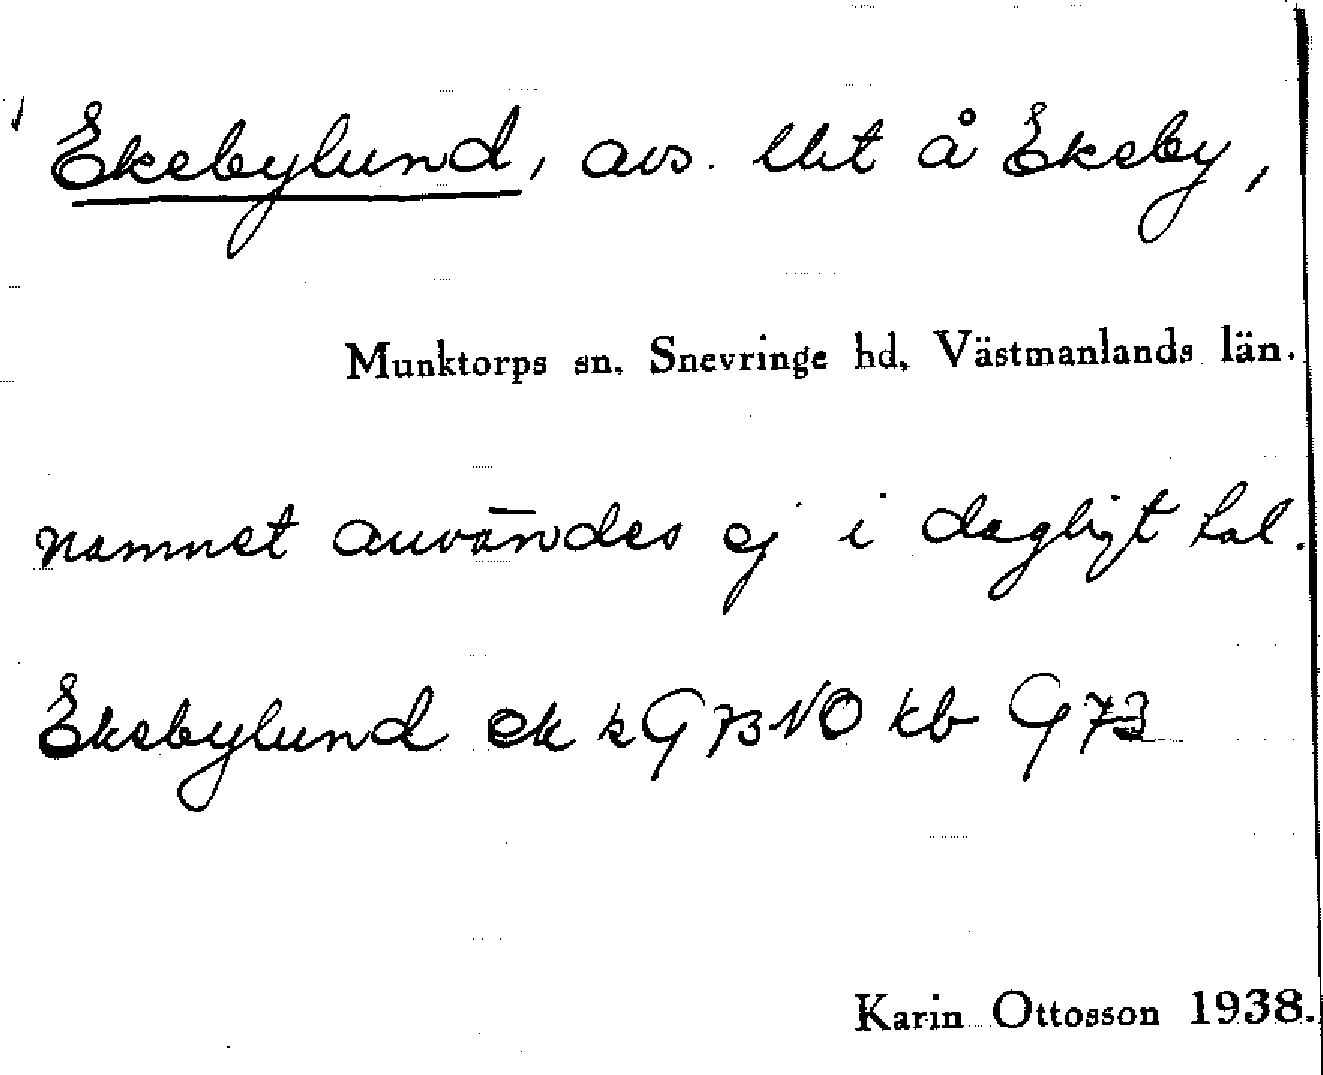 Ekebylund, avs. lht å Ekeby,
Munktorps sn, Snevringe hd, Västmanlands län.
namnet användes ej i dagligt tal.
Ekebylund ek k G 73 NO kb G 73
Karin Ottosson 1938.